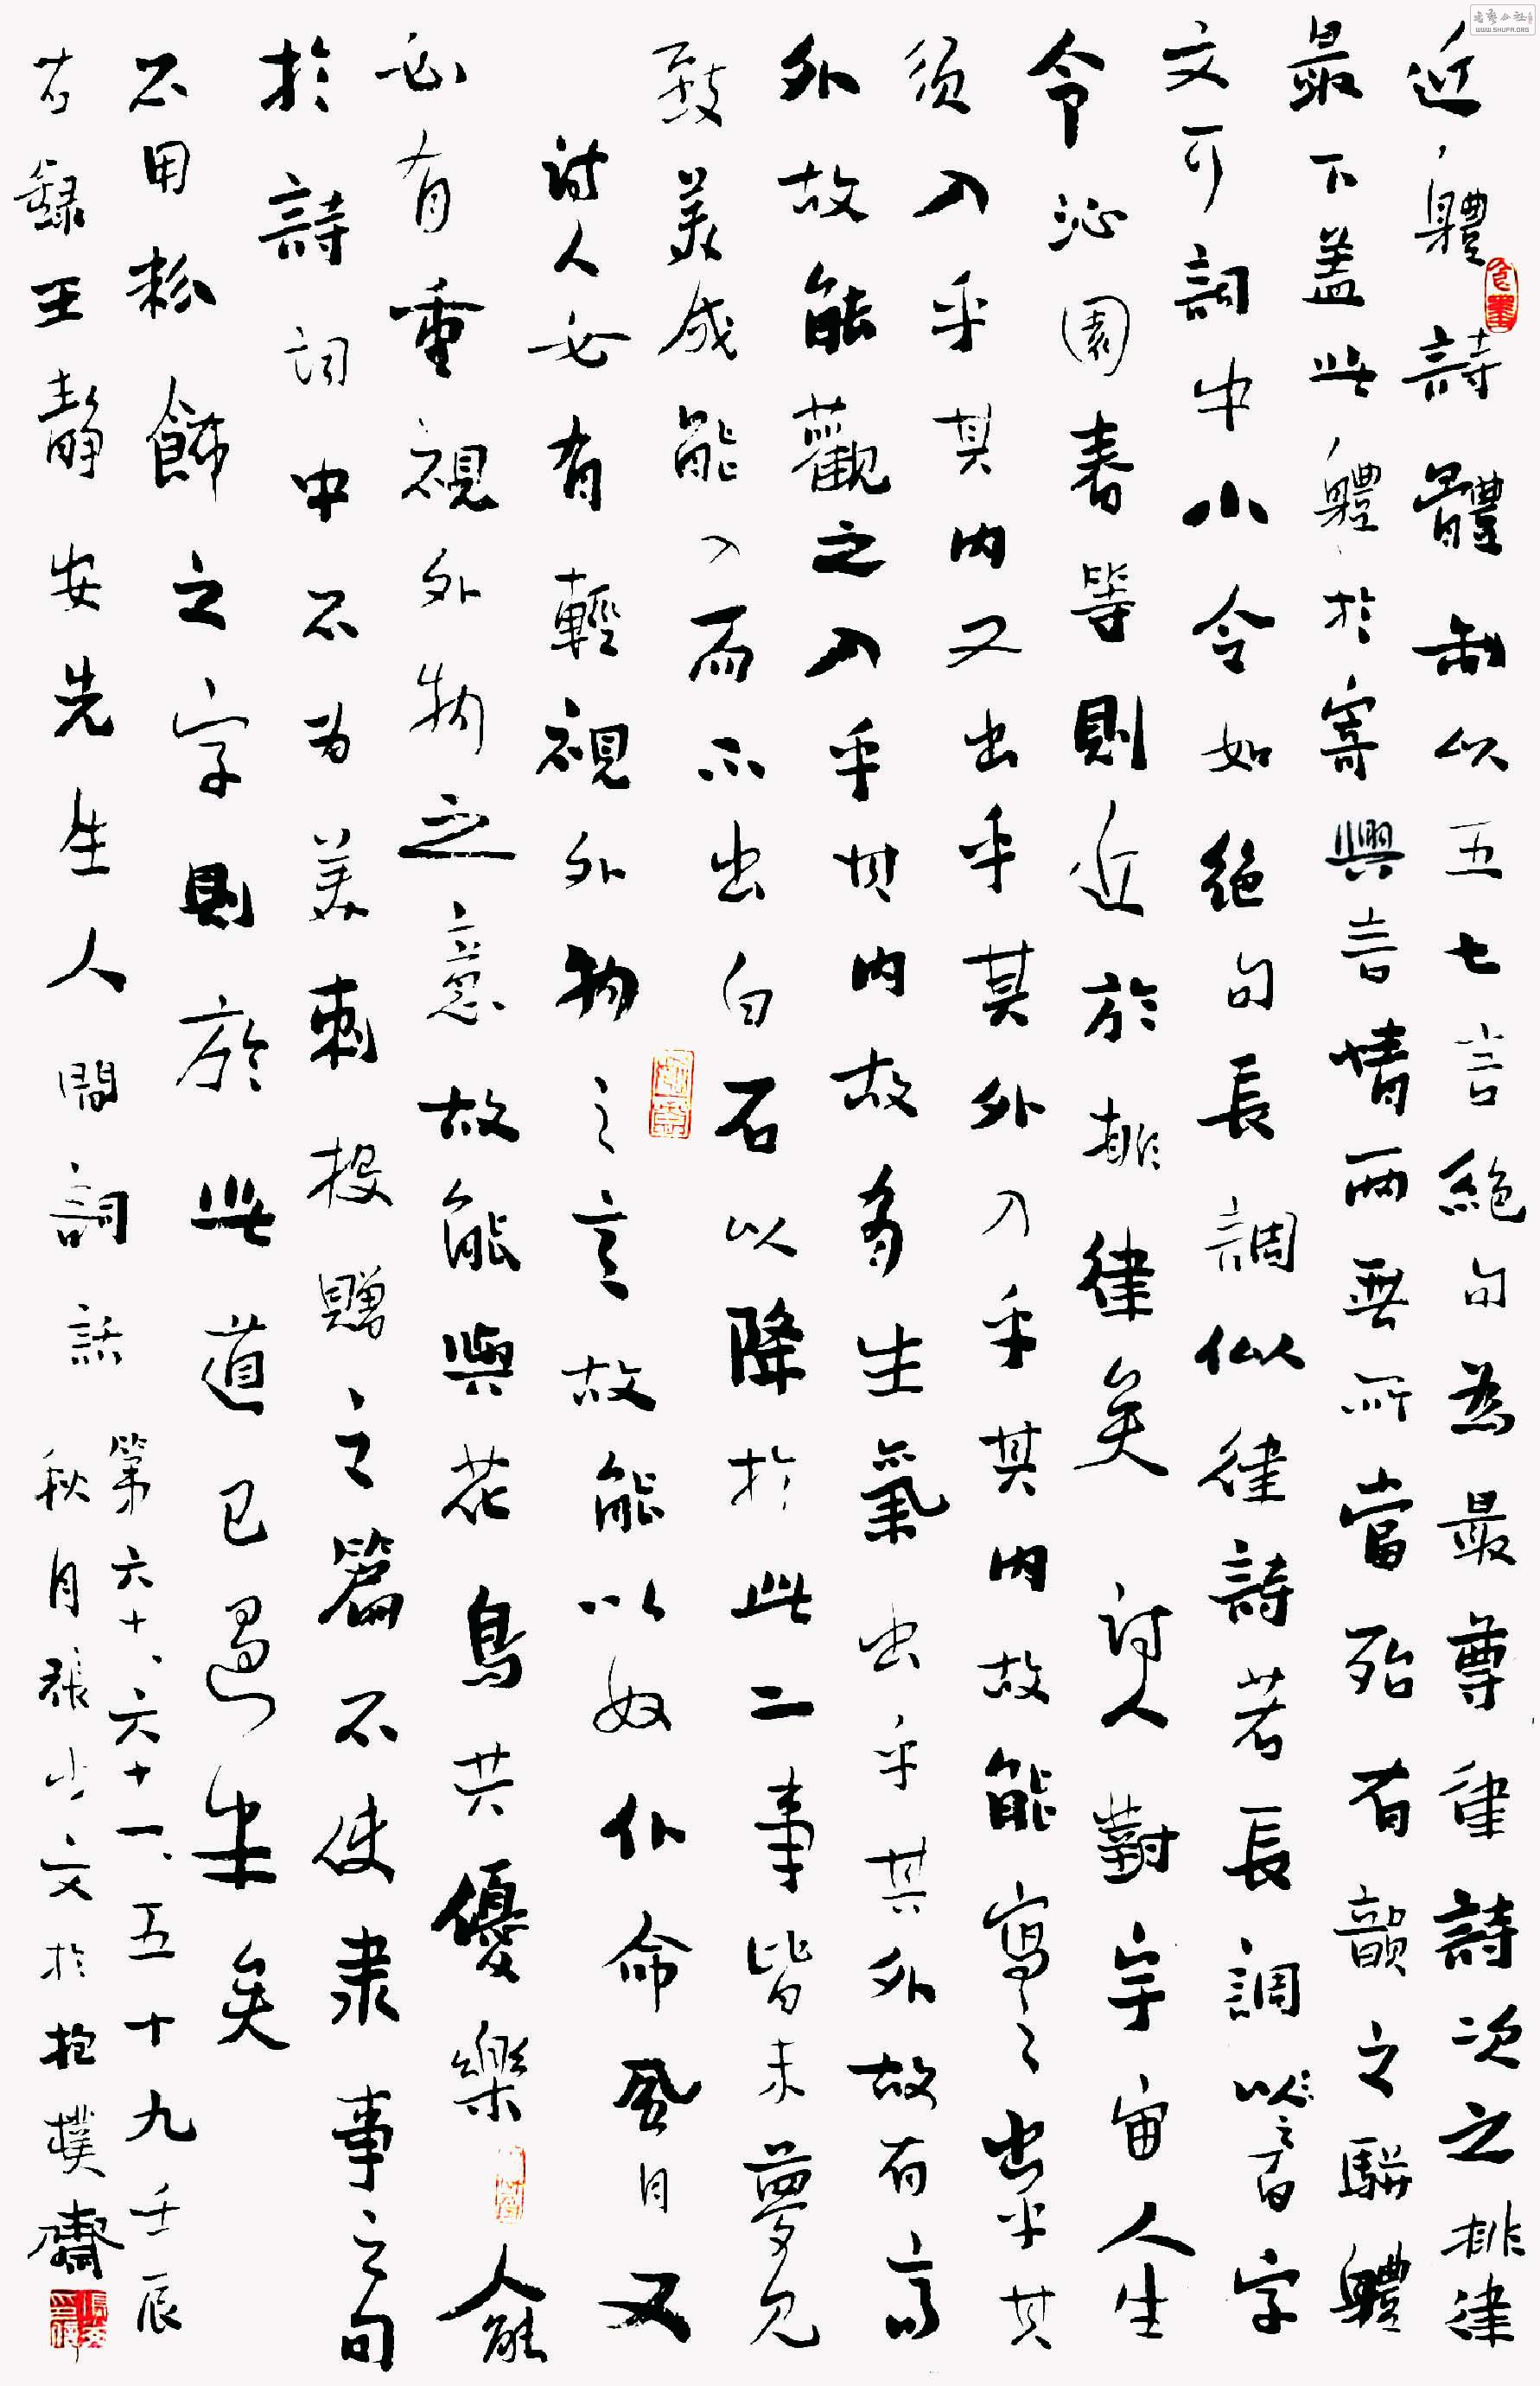 近軆詩體制以五七言絶句為最尊律詩次之排律
最下蓋此軆於寄興言情兩無所當殆有韻之駢軆
文耳詞中小令如絶句長調似律詩若長調之百字
令沁園春等則近於排律矣 詩人對宇宙人生
須入乎其内又出乎其外入乎其内故能寫之出乎其
外故能觀之入乎其内故有生氣出乎其外故有高
致美成能入而不出白石以降於此二事皆未夢見
詩人必有輕視外物之意故能以奴仆命風月又
必有重視外物之意故能與花鳥共優樂 人能
於詩詞中不為美刺投贈之篇不使隸事之句
不用粉飾之字則於此道已過半矣
右録王靜安先生人間詞話
第六十、六十一、五十九壬辰
秋月張少文於抱樸齋
WWW.SHUFA.ORG